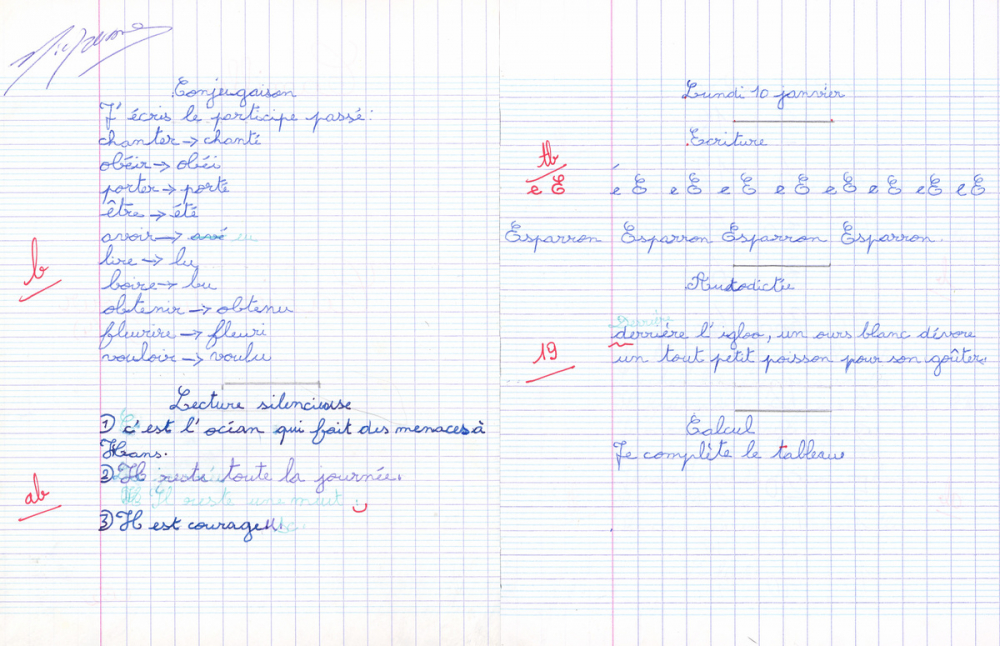 Conjeugaison
J' écris le participe passé:
chanter → chanté
obéir → obéi
porter → porté
être → été
avoir → avé eu
lire → lu
b
boire → bu
obtenir → obtenu
fleurire → fleuri
vouloir → voulu
Lecture silencieuse
1) c'est l'océan qui fait des menaces à
Hans.
2) Il reste toute la journée.
ab
Il reste une nuit
3) Il est courageux.
Lundi 10 janvier
Ecriture
tb
e E e E e E e E e E e E e E e E e E
Esparron Esparron Esparron Esparron.
Autodictée
Derrière
derrière l'igloo, un ours blanc dévore
19
un tout petit poisson pour son goûter.
Calcul
Je complète le tableau